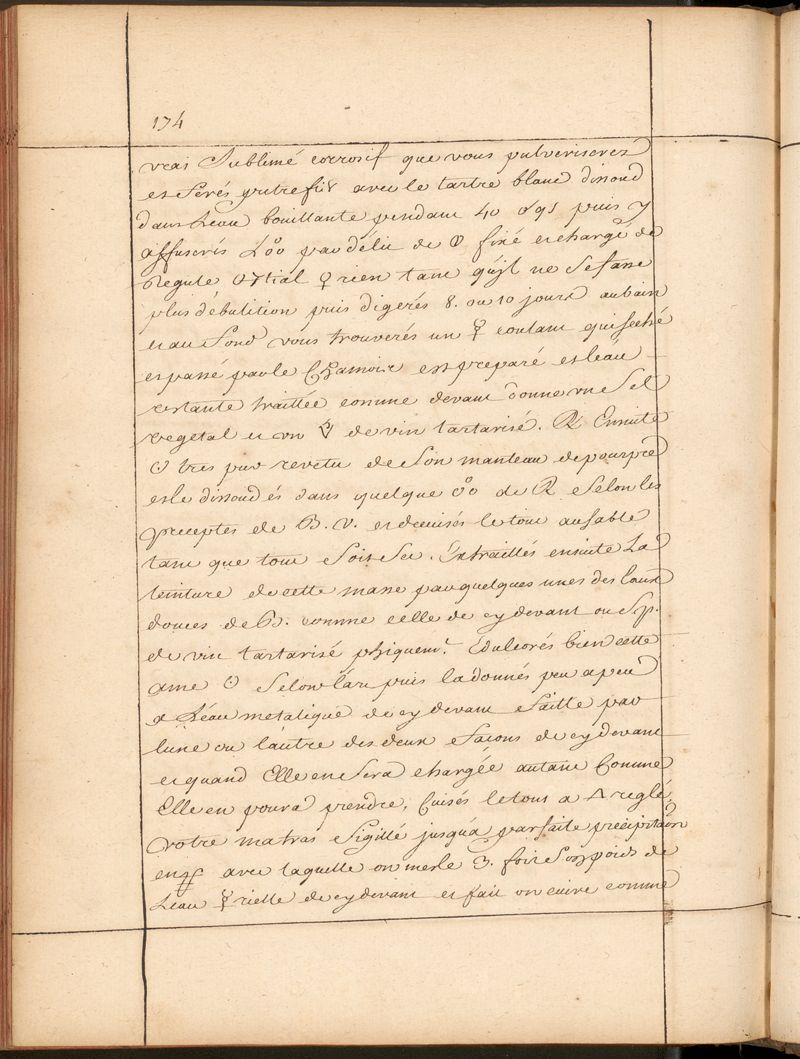 174
vrai Sublimé corrosif que vous pulveriserez
et ferés putrefier avec le tartre blanc dissoud
dans l'eau bouillante pendant 40 puis y
affuserés par délié de fixé et chargé de
Regule ♂tial ☿rien tant qu'jl ne se fasse
plus débulition puis digerés 8. ou 10 jours au bain
et au fond vous trouverés un ☿ coulant qui seché
et passé par le Chamoix est preparé et l'eau
restante traittée comme devant donne un Sel
vegetal et un de vin tartarisé. ℞ Ensuite
☉ tres pur revetu de Son manteau de pourpre
et le dissoudés dans quelque de ℞ Selon les
preceptes de B. V. et cuisés le tout au sable
tant que tout Soit Sec. Extraittés ensuite La
teinture de cette masse par quelques unes des Eaux
douces de B. comme celle de cy devant ou Sp.
de vin tartarisé phiquem.t Edulcorés bien cette
ame ☉ Selon l'art puis la donnés peu a peu
a L'eau metalique de cy devant faitte par
lune ou lautre des deux facons de cy devant
et quand Elle en Sera chargée autant Comme
Elle en poura prendre, Cuisés le tout a △ reglé,
votre matras Sigillé jusqu'a parfaite precipitaōn
en avec laquelle on mesle 3. fois Son poids de
Leau ☿rielle de cy devant et fait on cuire comme